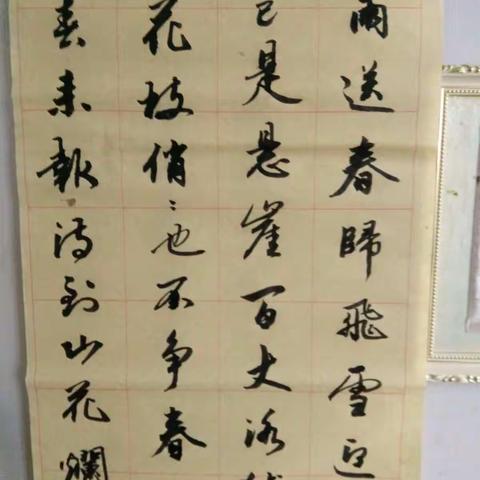 雨送春歸飛雪迎
已是悬崖百丈冰
花枝俏〻也不争春
春来報待到山花爛